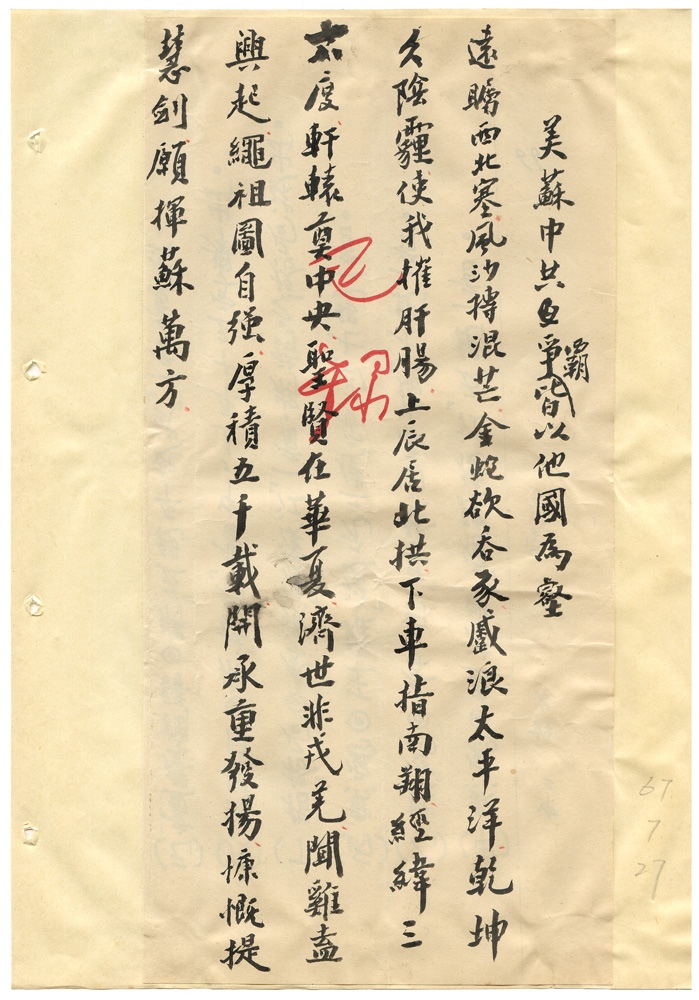 美蘇中共互爭霸皆以他國為壑
遠矚西北塞風沙摶混芒金蛇欲吞豕戲浪太平洋乾坤
久陰霾使我摧肝腸上辰居北拱下車指南翔經緯三
六度軒轅奠中央聖賢在華夏濟世非戎羌聞雞盍
興起繩祖圖自强厚積五千載開承重發揚慷慨提
慧劍願揮蘇萬方
已
67.
7.
27